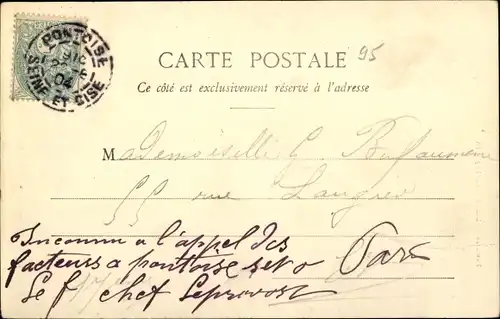 PONTOISE
04
SEINE ET OISE
95
CARTE POSTALE
Ce côté est exclusivement réservé à l'adresse
Mademoiselle G.
55 rue Laugier
Inconnu a l'appel des
facteurs a pontoise set o Paris
Le f chef Leprevost